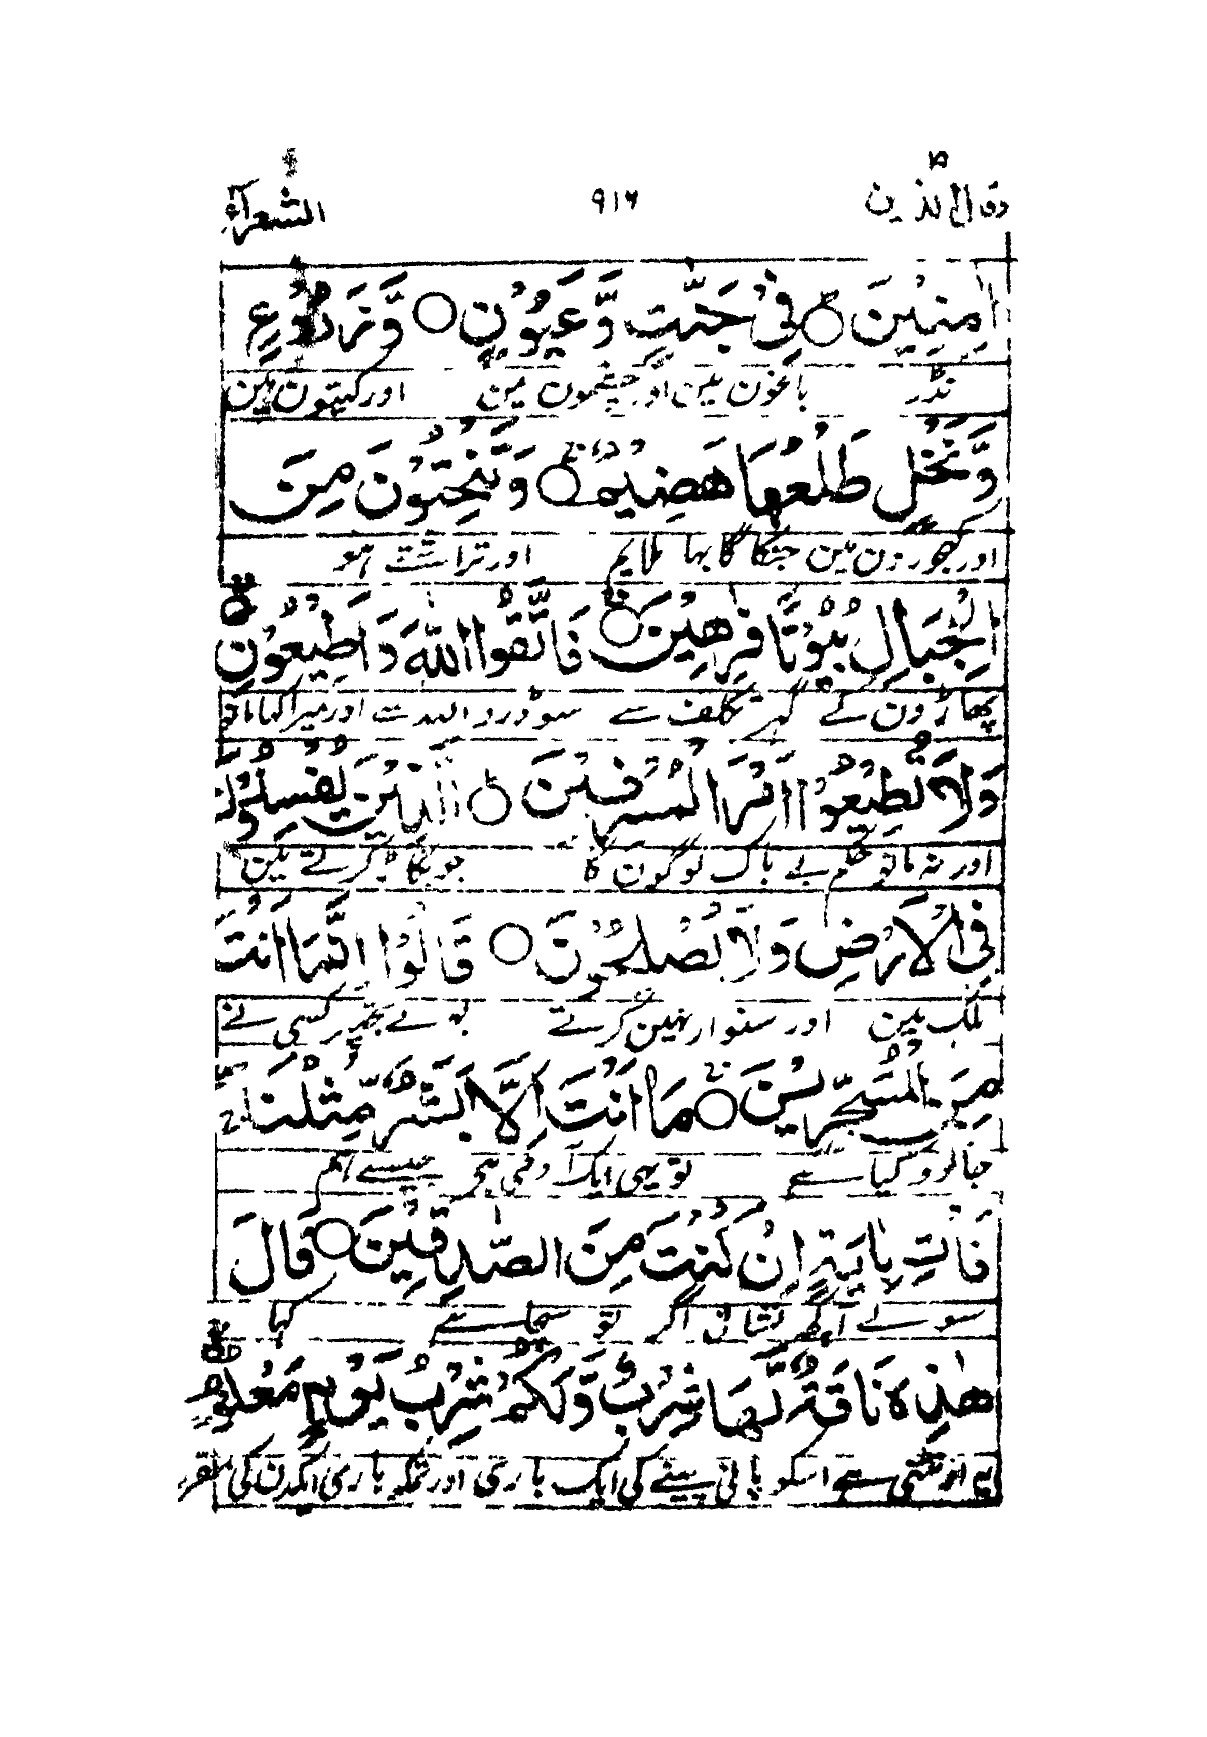 وقال الذین ۹۱۶ الشعرآء
اٰمِنِیْنَ ○ فِیْ جَنّٰتٍ وَّعُیُوْنٍ ○ وَّزُرُوْعٍ
نڈر باغون مین اور چشمون مین اور کھیتون مین
وَّنَخْلٍ طَلْعُهَا هَضِیْمٌ ○ وَتَنْحِتُوْنَ مِنَ
اور کھجورون مین جنکا گابہا ملایم اور تراشتے ہو
الْجِبَالِ بُیُوْتًا فٰرِهِیْنَ ○ فَاتَّقُوا اللّٰهَ وَاَطِیْعُوْنِ ○
پھاڑون کے گہر تکلف سے سو ڈرو اللہ سے اور میرا کہا مانو
وَلَا تُطِیْعُوْا اَمْرَ الْمُسْرِفِیْنَ ○ الَّذِیْنَ یُفْسِدُوْنَ
اور نہ مانو حکم بے باک لوگون کا جو بگاڑ کرتے ہین
فِی الْاَرْضِ وَلَا یُصْلِحُوْنَ ○ قَالُوْا اِنَّمَا اَنْتَ
ملک مین اور سنوار نہین کرتے بولے تجھپر کسی نے
مِنَ الْمُسَحَّرِیْنَ ○ مَا اَنْتَ اِلَّا بَشَرٌ مِّثْلُنَا
جادو کیا ہے تو یہی ایک آدمی ہی جیسے ہم
فَاْتِ بِاٰیَةٍ اِنْ كُنْتَ مِنَ الصّٰدِقِیْنَ ○ قَالَ
سو لے آ کچھ نشانی اگر تو سچا ہے کہا
هٰذِهٖ نَاقَةٌ لَّهَا شِرْبٌ وَّلَكُمْ شِرْبُ یَوْمٍ مَّعْلُوْمٍ
یہ اونٹنی ہے اسکو پانی پینے کی ایک باری اور تمکو باری ایکدن کی مقرر